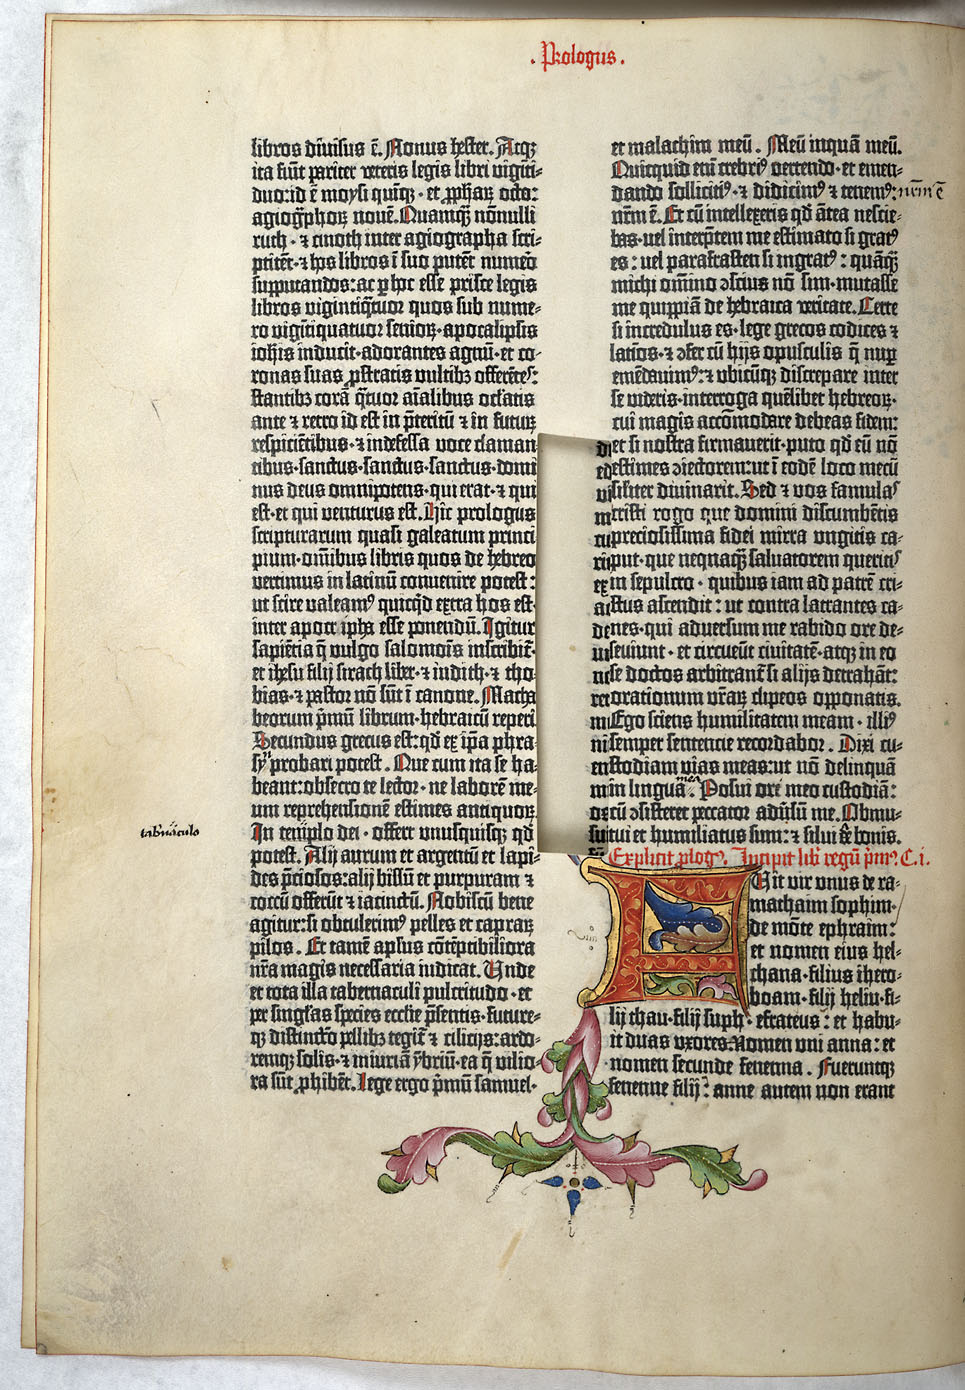 . Prologus .
libros diuisus ē. Nonus hester. Atqꝫ
ita fiūt pariter veteris legis libri vigiti-
duo: id ē moysi quīqꝫ · et ꝓphaꝝ octo:
agiogͣphoꝝ nouē. Quamqͣꝫ nōnulli
ruth · ⁊ cinoth inter agiographa scri-
ptitēt · ⁊ hos libros ī suo putēt numeō
supputandos: ac ꝑ hoc esse prisce legis
libros vigintiqͣtuor quos sub nume-
ro vigītiquatuor senioꝝ · apocalipsis
iohis inducit · adorantes agnū · et co-
ronas suas ꝓstratis vultibꝫ offerētes:
stantibꝫ corā qͣtuor aīalibus oclatis
ante ⁊ retro id est in p̄teritū ⁊ in futuꝝ
respiciētibus · ⁊ indefessa voce claman
tibus · sanctus · sanctus · sanctus · domi
nus deus omnipotens · qui erat · ⁊ qui
est · et qui venturus est. Hic prologus
scripturarum quasi galeatum princi
pium · oīnibus libris quos de hebreo
vertimus in latinū conuenire potest:
ut scire valeamꝰ quicqͥd extra hos est
inter apocripha esse ponendū. Igitur
sapiētia q̄ vulgo salomoīs inscribit᷑
et ihesu filij sirach liber · ⁊ iudith · ⁊ tho
bias · ⁊ pastor nō sūt ī canone. Macha
beorum p̄mū librum · hebraicū reperi
Secundus grecus est: qd̄ ex ip̄a phra-
sy probari potest. Que cum ita se ha-
beant: obsecro te lector · ne laborē me-
um reprehensionē estimes antiquoꝝ.
tab'naculo
In templo dei · offert vnusquisqꝫ qd̄
potest. Alij aurum et argentū et lapi-
des p̄ciosos: alij bissū et purpuram ⁊
coccū offerūt ⁊ iacinctū. Nobiscū bene
agitur: si obtulerimꝰ pelles et capraꝝ
pilos. Et tamē apłus cōtēptibiliora
nr̄a magis necessaria iudicat. Unde
et tota illa tabernaculi pulcritudo · et
per singlas species ecclie p̄sentis · future-
qꝫ distinctio pellibꝫ tegit᷑ ⁊ cilicijs: ardo-
remqꝫ solis · ⁊ iniuriā ybriū · ea q̄ vilio-
ra sūt ꝓhibēt. Lege ergo p̄mū samuel ·
et malachim meū. Meū inquā meū.
Quicquid eni crebriꝰ vertendo · et emen-
dando sollicitiꝰ · ⁊ didicimꝰ ⁊ tenemꝰ: nr̄m ē
nr̄m ē. Et cū intellexeris qd̄ ātea nescie-
bas · vel interp̄tem me estimato si gratꝰ
es: vel parafrasten si ingratꝰ: quāqͣꝫ
michi oīnino ↄscius nō sim · mutasse
me quippiā de hebraica veritate. Certe
si incredulus es · lege grecos codices ⁊
latinos · ⁊ ↄfer cū hijs opusculis q̄ nuꝑ
emēdauimꝰ: ⁊ vbicūqꝫ discrepare inter
se videris · interroga quēlibet hebreoꝝ ·
cui magis accōmodare debeas fidem:
et si nostra firmauerit · puto qd̄ eū nō
estimes ↄiectorem: ut ī eodē loco mecū
similiter diuinarit. Sed ⁊ vos famulas
cristi rogo que domini discumbētis
preciosissima fidei mirra vngitis ca-
put · que nequaqͣꝫ saluatorem queritis
in sepulcro · quibus iam ad patrē cri-
stus ascendit: ut contra latrantes ca-
nes · qui aduersum me rabido ore de-
seuiunt · et circueūt ciuitatē · atqꝫ in eo
se doctos arbitrant᷑ si alijs detrahāt:
orationum vr̄aꝝ clipeos opponatis.
Ego sciens humilitatem meam · illiꝰ
semper sentencie recordabor. Dixi cu-
stodiam vias meas: ut nō delinquā
in lingua mea. Posui ori meo custodiā:
cū ↄsisteret peccator aduersū me. Obmu-
tui et humiliatus sum: ⁊ silui a bonis.
Explicit ꝓlogꝰ. Incipit lib' regū p̄mꝰ. C. i.
Fuit vir vnus de ra-
mathaim sophim ·
de mōte ephraim:
et nomen eius hel-
chana · filius ihero-
boam · filij heliu · fi-
lij thau · filij suph · efrateus: et habu-
it duas vxores. Nomen vni anna: et
nomen secunde fenenna. Fueruntqꝫ
fenenne filij: anne autem non erant